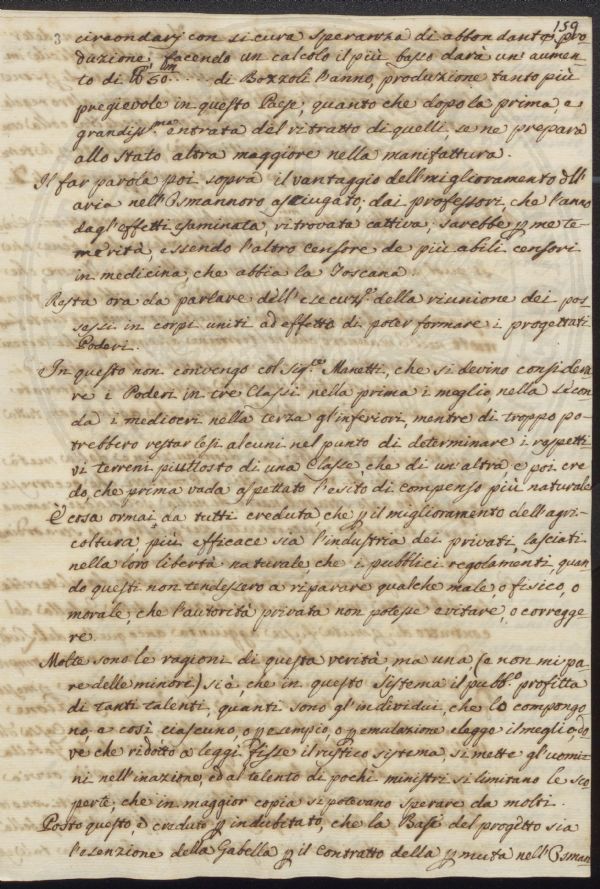 159
3 circondarj con sicura speranza di abbondante pro-
duzione; facendo un calcolo il più basso darà un' aumen-
to di 50 di Bozzoli l'anno, produzione tanto più
pregievole in questo Paese, quanto che dopo la prima, e
grandiss.ma entrata del ritratto di quelli, se ne prepara
allo Stato altra maggiore nella manifattura.
Il far parola poi sopra il vantaggio dell'miglioramento dll'
aria nell'Osmannoro asciugato, dai professori, che l'anno
dagl'effetti esaminata, ritrovata cattiva, sarebbe teme-
merità, essendo l'altro censore de più abili censori
in medicina, che abbia la Toscana.
Resta ora da parlare dell'esecuz.e della riunione dei pos-
sessi in corpi uniti ad effetto di poter formare i progettati
Poderi.
In questo non convengo col Sig.re Manetti, che si devino considera
re i Poderi in tre Classi nella prima i meglio, nella secon
da i mediocri nella terza gl'inferiori, mentre di troppo po-
trebbero restar lesi alcuni nel punto di determinare i respetti
vi terreni piuttosto di una Classe, che di un'altra e poi cre
do, che prima vada aspettato l'esito di compenso più naturale
È cosa ormai da tutti creduta, che p il miglioramento dell'agri-
coltura più efficace sia l'industria dei privati, lasciati
nella loro libertà naturale che i pubblici regolamenti, quan
do questi non tendessero a riparare qualche male, o fisico, o
morale, che l'autorità privata non potesse evitare, o corregge-
re.
Molte sono le ragioni di questa verità, ma una (e non mi pa
re delle minori) si è, che in questo sistema il pubb.o profitta
di tanti talenti, quanti sono gl'individui, che lo compongo
no, a così ciascuno, o p esempio, o p emulazione elegge il meglio, do
ve che ridotto a leggi fisse il rustico sistema, si mette gl'uomi-
ni nell'inazione, ed al talento di pochi ministri si limitano le sco
perte, che in maggior copia si potevano sperare da molti.
Posto questo, è creduto p indubitato, che la Base del progetto sia
l'esenzione della Gabella p il contratto della p muta nell'Osman